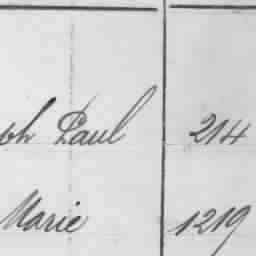 oh Paul 214
Marie 1219